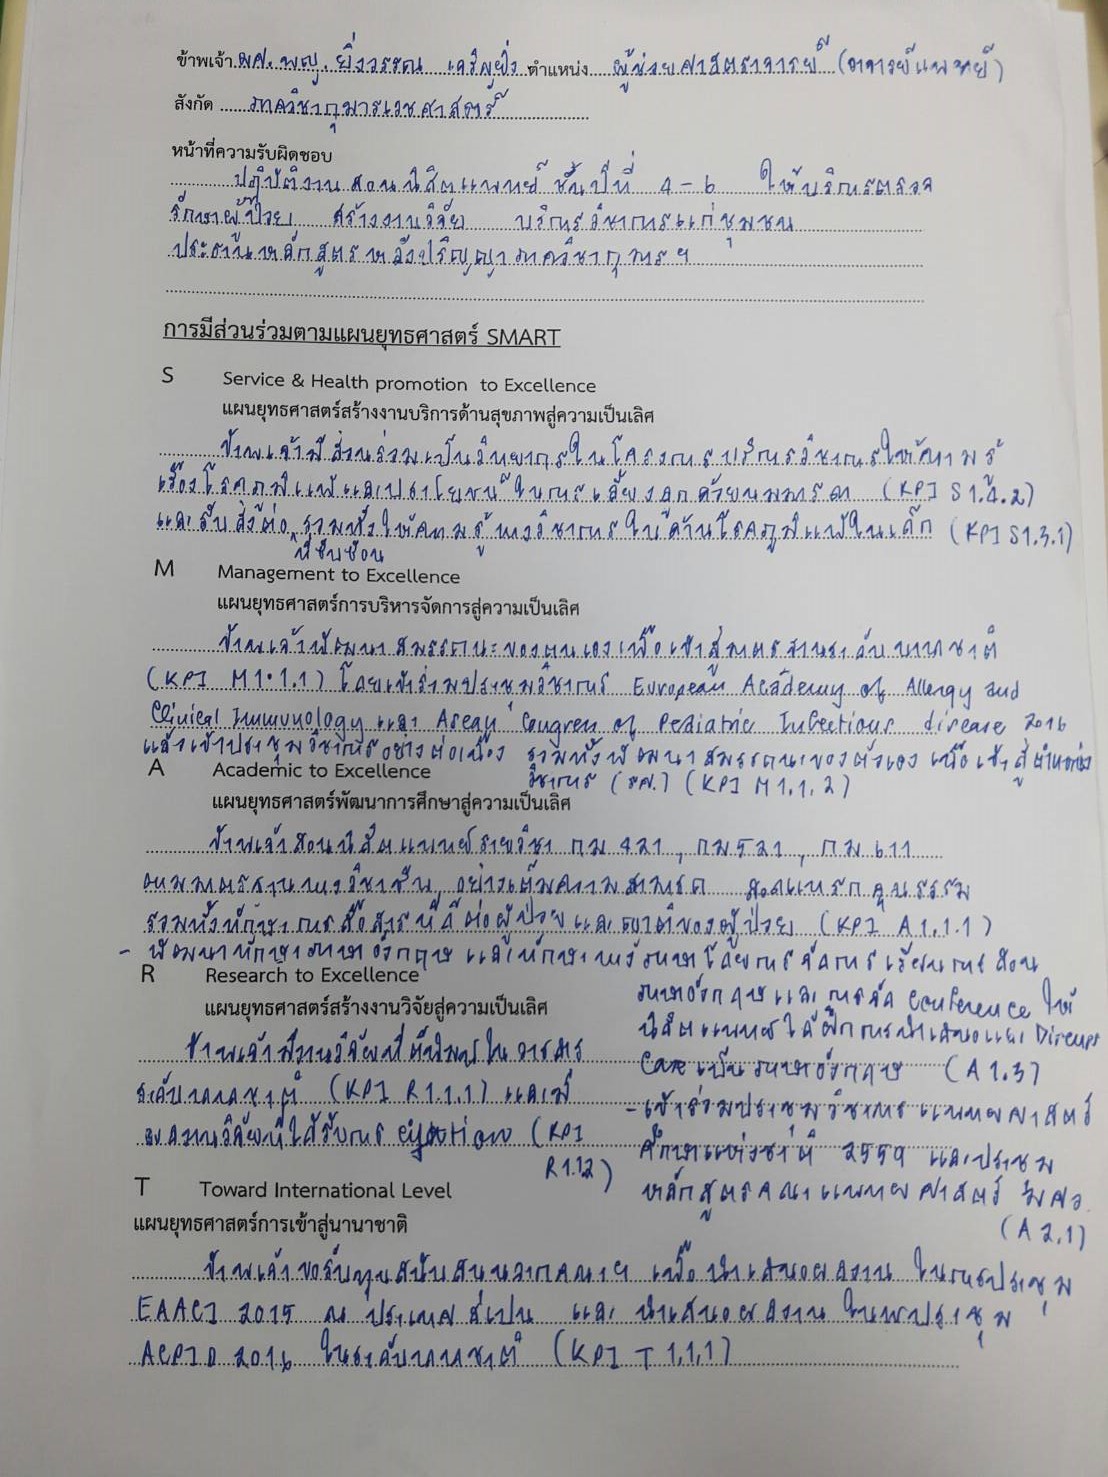 ข้าพเจ้า ผศ. พญ. ยิ่งวรรณ เจริญยิ่ง ตำแหน่ง ผู้ช่วยศาสตราจารย์ (อาจารย์แพทย์)
สังกัด ภาควิชากุมารเวชศาสตร์
หน้าที่ความรับผิดชอบ
ปฏิบัติงานสอนนิสิตแพทย์ ชั้นปีที่ 4-6 ให้บริการตรวจ
รักษาผู้ป่วย สร้างงานวิจัย บริการวิชาการแก่ชุมชน
ประธานหลักสูตรหลังปริญญาภาควิชากุมารฯ
การมีส่วนร่วมตามแผนยุทธศาสตร์ SMART
S Service & Health promotion to Excellence
แผนยุทธศาสตร์สร้างงานบริการด้านสุขภาพสู่ความเป็นเลิศ
ข้าพเจ้ามีส่วนร่วมเป็นวิทยากรในโครงการบริการวิชาการให้ความรู้
เรื่องโรคภูมิแพ้และประโยชน์ในการเลี้ยงลูกด้วยนมมารดา (KPI S1.4.2)
และรับส่งต่อ รวมทั้งให้ความรู้ทางวิชาการในด้านโรคภูมิแพ้ในเด็ก (KPI S1.3.1)
ที่ซับซ้อน
M Management to Excellence
แผนยุทธศาสตร์การบริหารจัดการสู่ความเป็นเลิศ
ข้าพเจ้าพัฒนาสมรรถนะของตนเองเพื่อเข้าสู่มาตรฐานระดับนานาชาติ
(KPI M1.1.1) โดยเข้าร่วมประชุมวิชาการ European Academy of Allergy and
Clinical Immunology และ Asean Congress of Pediatric Infectious disease 2016
และเข้าประชุมวิชาการอย่างต่อเนื่อง รวมทั้งพัฒนาสมรรถนะของตัวเอง เพื่อเข้าสู่ตำแหน่ง
วิชาการ (รศ.) (KPI M1.1.2)
A Academic to Excellence
แผนยุทธศาสตร์พัฒนาการศึกษาสู่ความเป็นเลิศ
ข้าพเจ้าสอนนิสิตแพทย์รายวิชา กม 421, กม 521, กม 611
ตามมาตรฐานทางวิชาชีพ อย่างเต็มความสามารถ สอดแทรกคุณธรรม
รวมทั้งทักษะการสื่อสารที่ดีต่อผู้ป่วยและญาติของผู้ป่วย (KPI A1.1.1)
- พัฒนาทักษะภาษาอังกฤษ และทักษะทางภาษาโดยการจัดการเรียนการสอน
ภาษาอังกฤษและการจัด conference ให้
นิสิตแพทย์ได้ฝึกการนำเสนอและ Discuss
case เป็นภาษาอังกฤษ (A1.3)
- เข้าร่วมประชุมวิชาการแพทยศาสตร์
ศึกษาแห่งชาติ 2559 และประชุม
หลักสูตรคณะแพทยศาสตร์ มศว.
(A2.1)
R Research to Excellence
แผนยุทธศาสตร์สร้างงานวิจัยสู่ความเป็นเลิศ
ข้าพเจ้ามีงานวิจัยที่ตีพิมพ์ในวารสาร
ระดับนานาชาติ (KPI R1.1.1) และมี
ผลงานวิจัยที่ได้รับการ citation (KPI
R1.1.2)
T Toward International Level
แผนยุทธศาสตร์การเข้าสู่นานาชาติ
ข้าพเจ้าขอรับทุนสนับสนุนจากคณะฯ เพื่อนำเสนอผลงาน ในการประชุม
EAACI 2015 ณ ประเทศ สเปน และ นำเสนอผลงาน ในการประชุม
ACPID 2016 ในระดับนานาชาติ (KPI T 1.1.1)